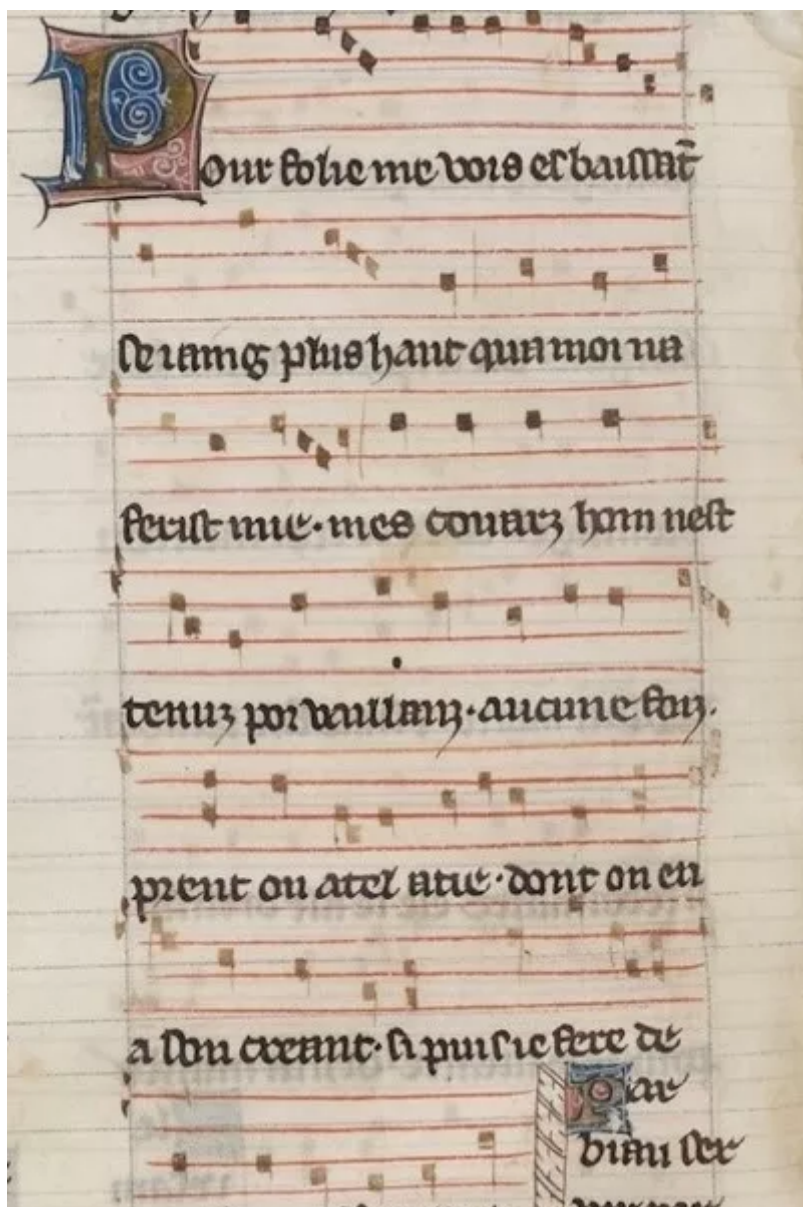 Pour folie me vois esbaissāt
se iaing plus haut qua moi na
ferist mie · mes couarz hom nest
tenuz por vaillanz · aucune foiz ·
prent on a tel atie · dont on en
a son creant · si puis ie fere de
Par
biau ser